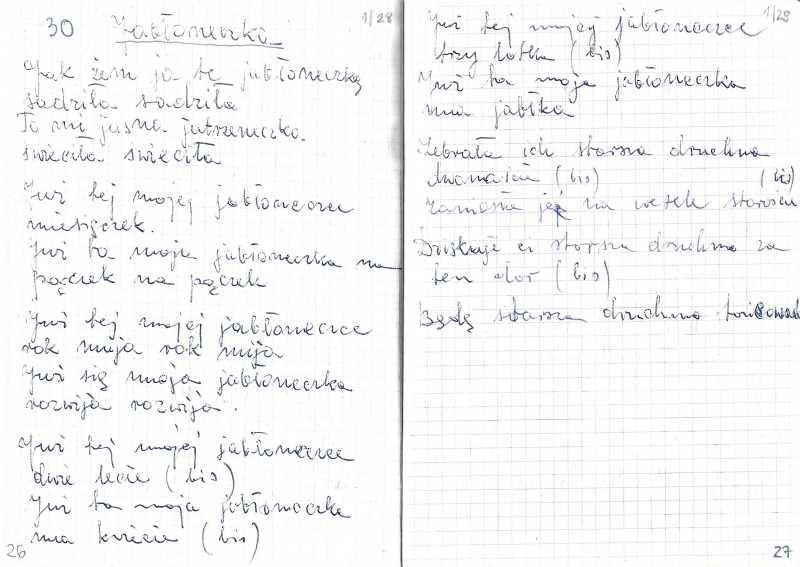 30 Jabłoneczka
1/28
Jak żem ja tę jabłoneczkę
sadziła sadziła
To mi jasna jutrzeneczka.
świeciła świeciła
Już tej mojej jabłoneczce
miesiączek.
Już ta moja jabłoneczka ma
pączek na pączek
Już tej mojej jabłoneczce
rok mija rok mija
Już się moja jabłoneczka
rozwija rozwija.
Już tej mojej jabłoneczce
dwie lecie (bis)
Już ta moja jabłoneczka
ma kwiecie (bis)
26
1/29
Już tej mojej jabłoneczce
trzy latka (bis)
Już ta moja jabłoneczka
ma jabłka
Zebrała ich starsza druchna
dwanaście (bis)
(bis)
Zaniosła je na wesele staroście
Dziękuję ci starsza druchna za
ten dar (bis)
Będę starsza druchna
27